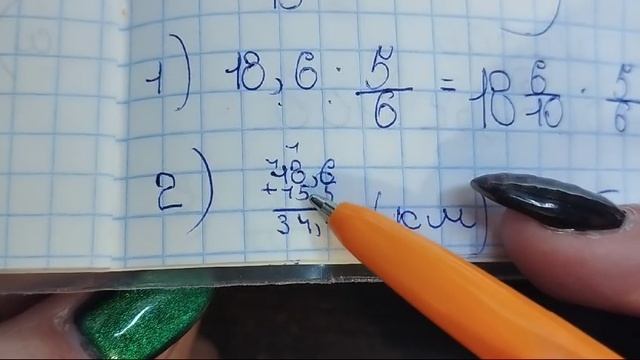 1) 18,6 · 5/6 = 18 6/10 · 5/6
2) 18,6
+ 15,5
34, (км)